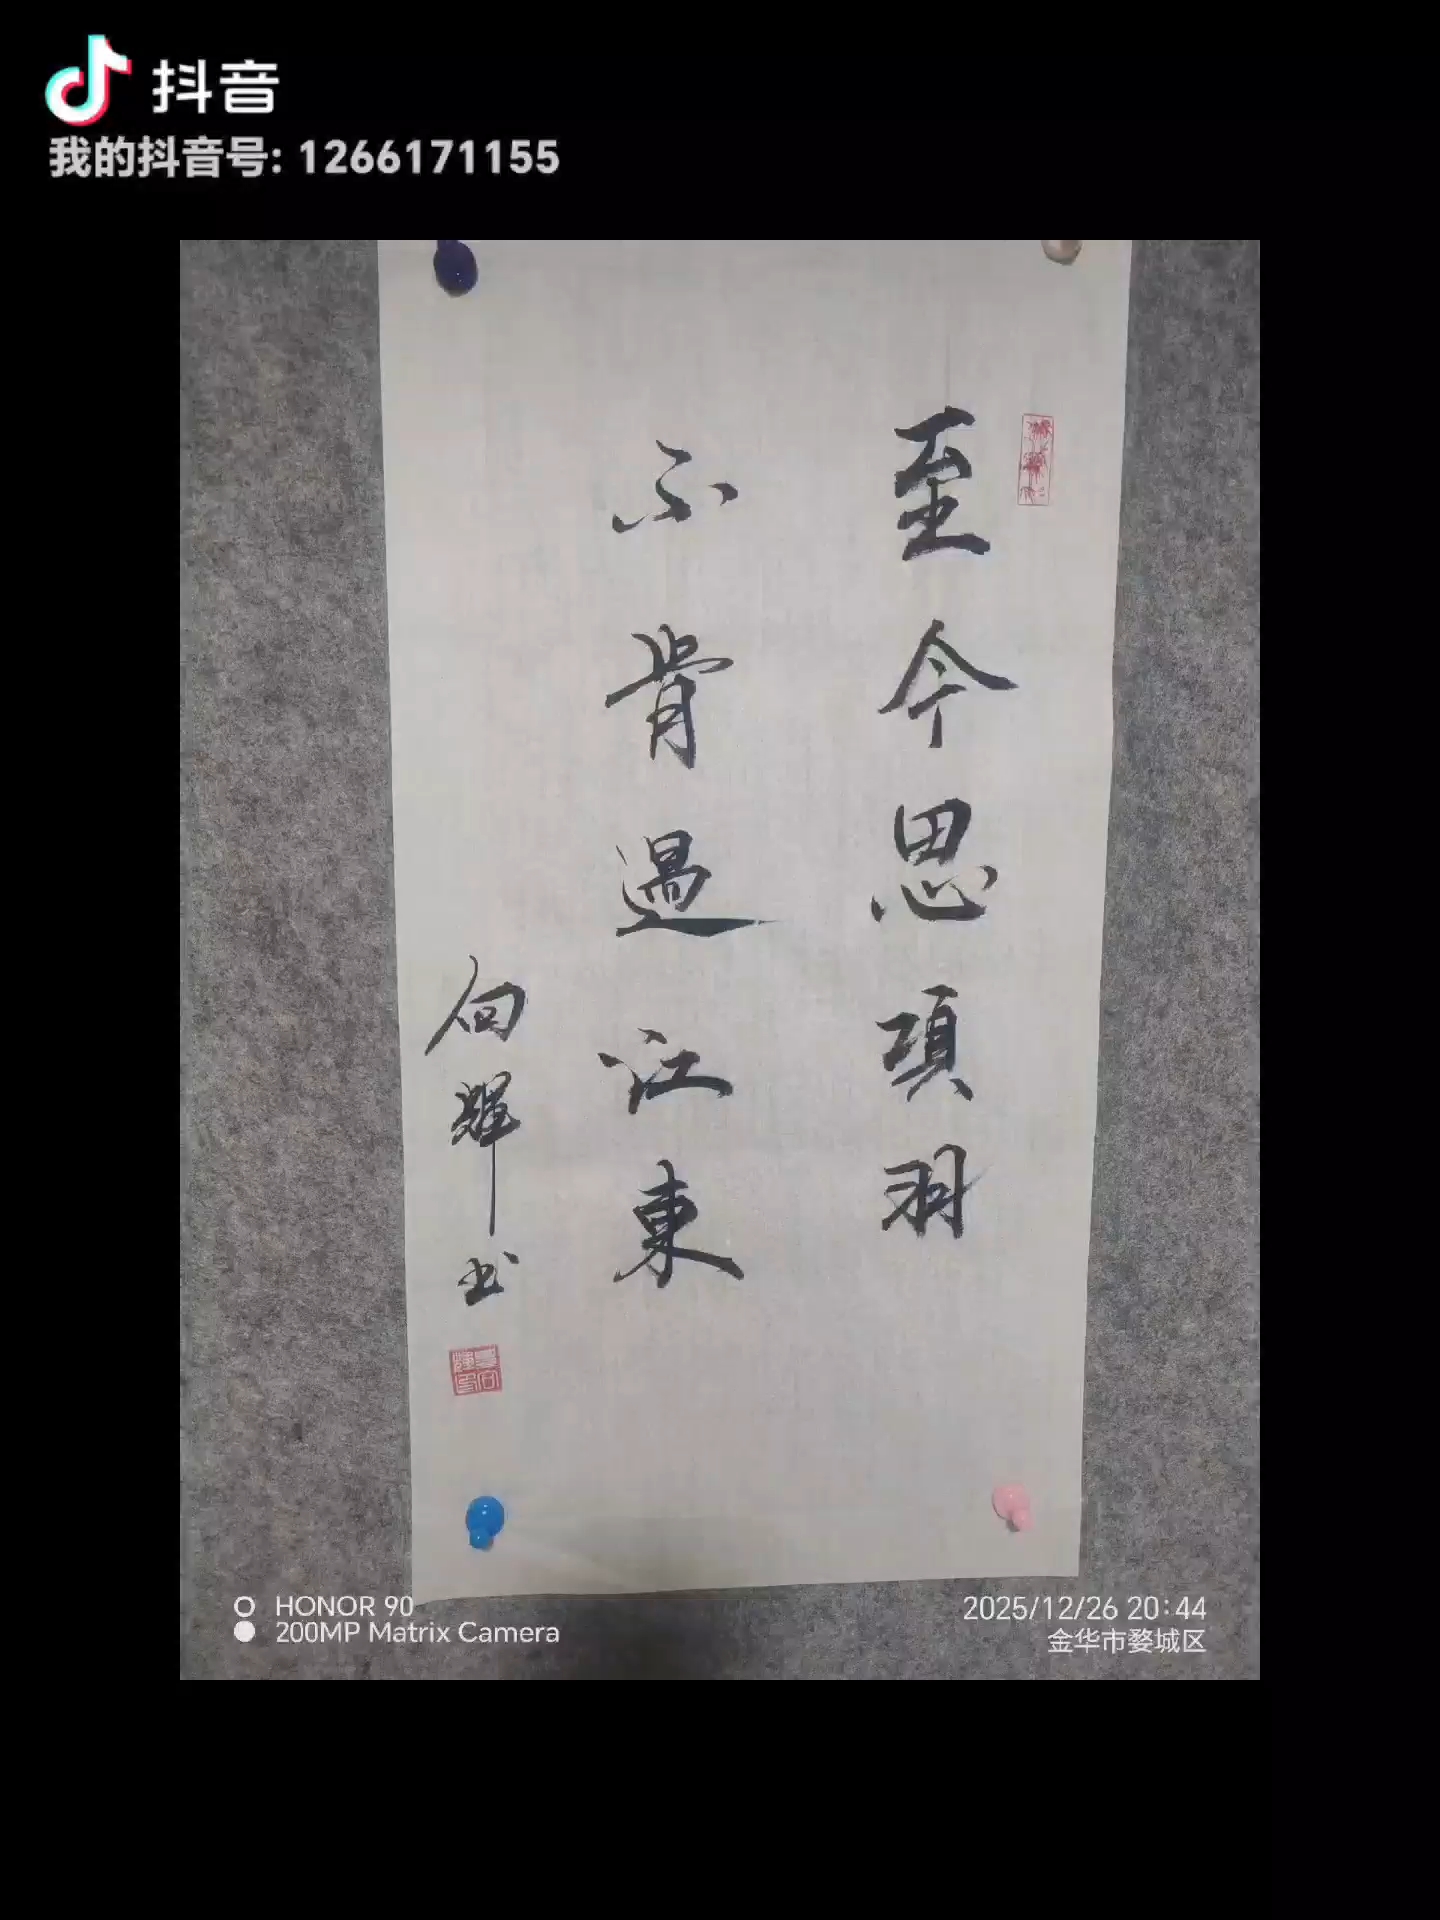 抖音
我的抖音号: 1266171155
至今思項羽
不肯過江東
向輝书
HONOR 90
200MP Matrix Camera
2025/12/26 20:44
金华市婺城区